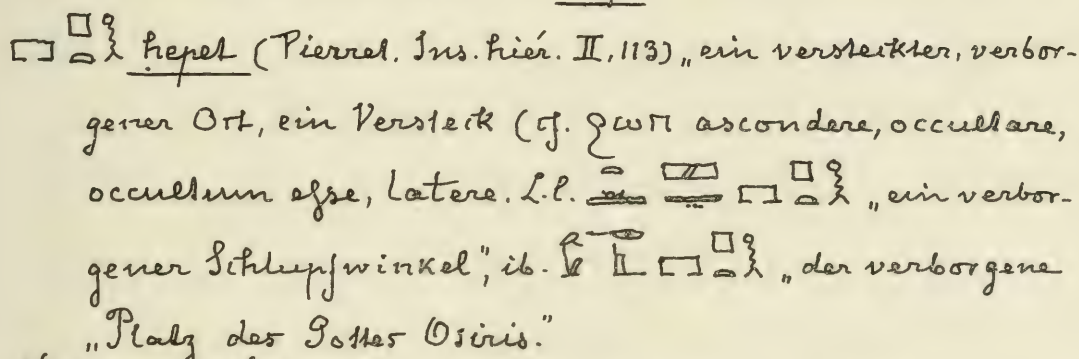 hepet (Pierret. Ins. hiér. II, 113) „ein versteckter, verbor-
gener Ort, ein Versteck (cf. ϩωп ascondere, occultare,
occultum esse, latere. L.l. „ein verbor-
gener Schlupfwinkel“, ib. „der verborgene
„Platz des Gottes Osiris.“